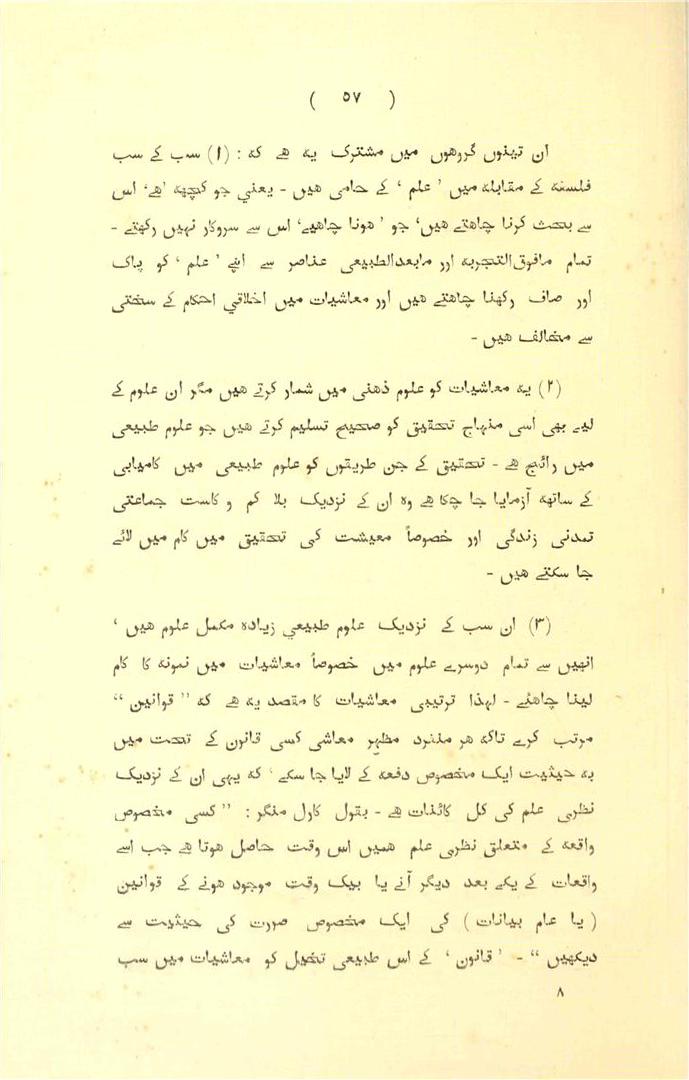 ( ۵۷ )
ان تینوں گروھوں میں مشترک یہ ھے کہ : (۱) سب کے سب
فلسفہ کے مقابلہ میں ' علم ، کے حامی ھیں - یعني جو کچھہ 'ھے، اس
سے بحث کرنا چاھتے ھیں، جو ' ھونا چاھیے، اس سے سروکار نہیں رکھتے -
تمام مافوق‌التجربہ اور مابعدالطبیعی عناصر سے اپنے ' علم ، کو پاک
اور صاف رکھنا چاھتے ھیں اور معاشیات میں اخلاقي احکام کے سختی
سے مخالف ھیں -
(۲) یہ معاشیات کو علوم ذھنی میں شمار کرتے ھیں مگر ان علوم کے
لیے بھی اُسی منہاج تحقیق کو صحیح تسلیم کرتے ھیں جو علوم طبیعی
میں رائج ھے - تحقیق کے جن طریقوں کو علوم طبیعی میں کامیابی
کے ساتھہ آزمایا جا چکا ھے وہ ان کے نزدیک بلا کم و کاست جماعتی
تمدنی زندگی اور خصوصاً معیشت کی تحقیق میں کام میں لائے
جا سکتے ھیں -
(۳) ان سب کے نزدیک علوم طبیعي زیادہ مکمل علوم ھیں ،
انھیں سے تمام دوسرے علوم میں خصوصاً معاشیات میں نمونہ کا کام
لینا چاھئے - لہذا ترتیبی معاشیات کا مقصد یہ ھے کہ ” قوانین “
مرتب کرے تاکہ ھر منفرد مظہر معاشی کسی قانون کے تحت میں
بہ حیثیت ایک مخصوص دفعہ کے لایا جا سکے ، کہ یہی ان کے نزدیک
نظری علم کی کل کائنات ھے - بقول کارل منگر : ” کسی مخصوص
واقعہ کے متعلق نظری علم ھمیں اس وقت حاصل ھوتا ھے جب اسے
واقعات کے یکے بعد دیگر آنے یا بیک وقت موجود ھونے کے قوانین
( یا عام بیانات ) کی ایک مخصوص صورت کی حیثیت سے
دیکھیں “ - ' قانون ، کے اس طبیعی تخیل کو معاشیات میں سب
۸